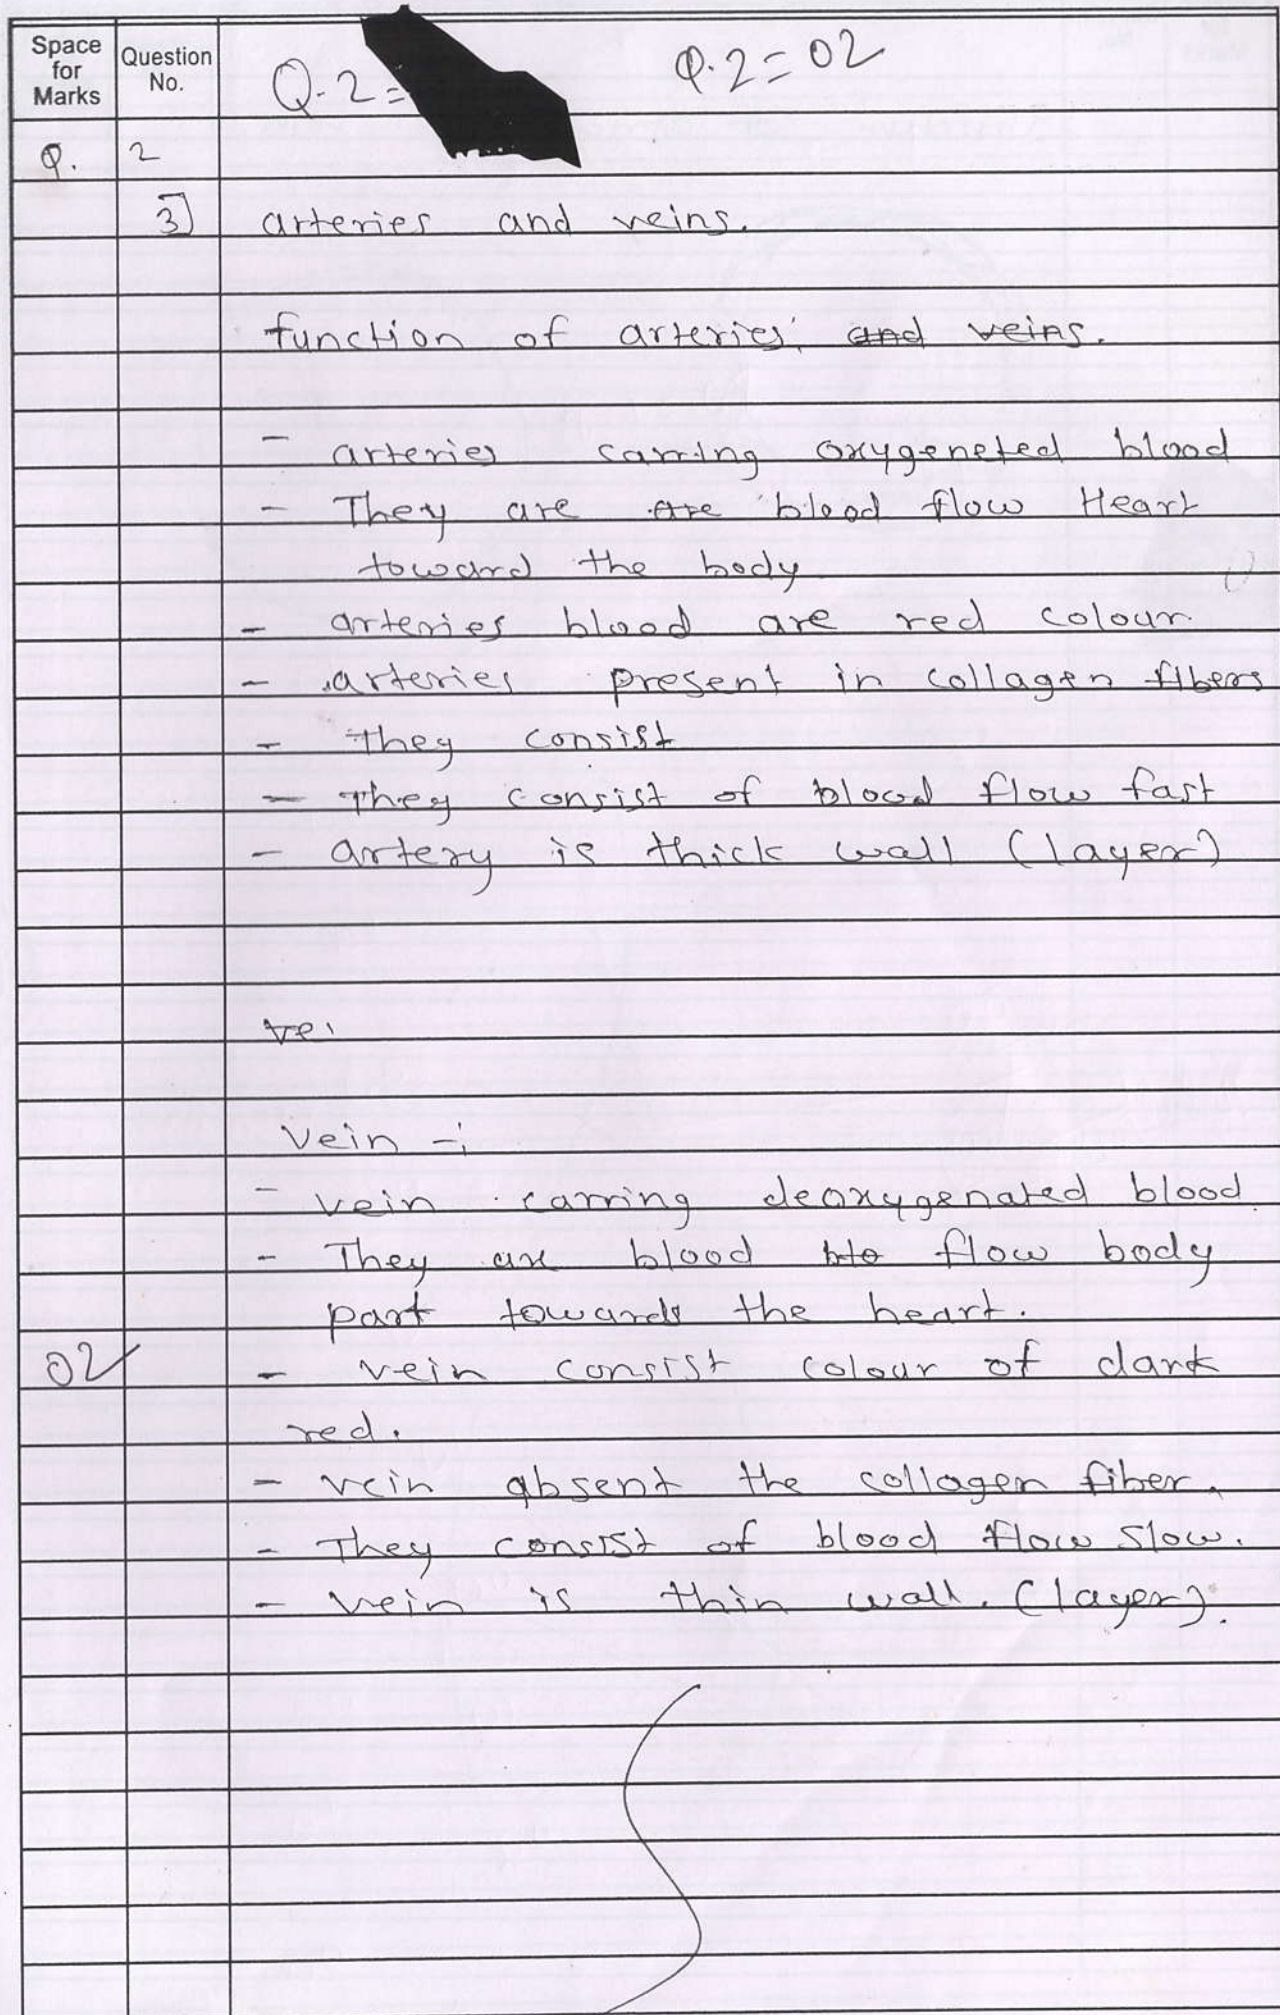 Space for Marks
Question No.
Q.2=
Q.2=02
Q. 2
3] arteries and veins.
function of arteries, and veins.
- arteries carring oxygeneted blood
- They are are blood flow Heart
toward the body
- arteries blood are red colour.
- arteries present in collagen fibers
- They consist
- They consist of blood flow fast
- artery is thick wall (layer)
vei
vein -:
- vein carring deoxygenated blood
- They are blood blo flow body
part towards the heart.
02
- vein consist colour of dark
red.
- vein absent the collagen fiber.
- They consist of blood flow slow.
- vein is thin wall. (layer).